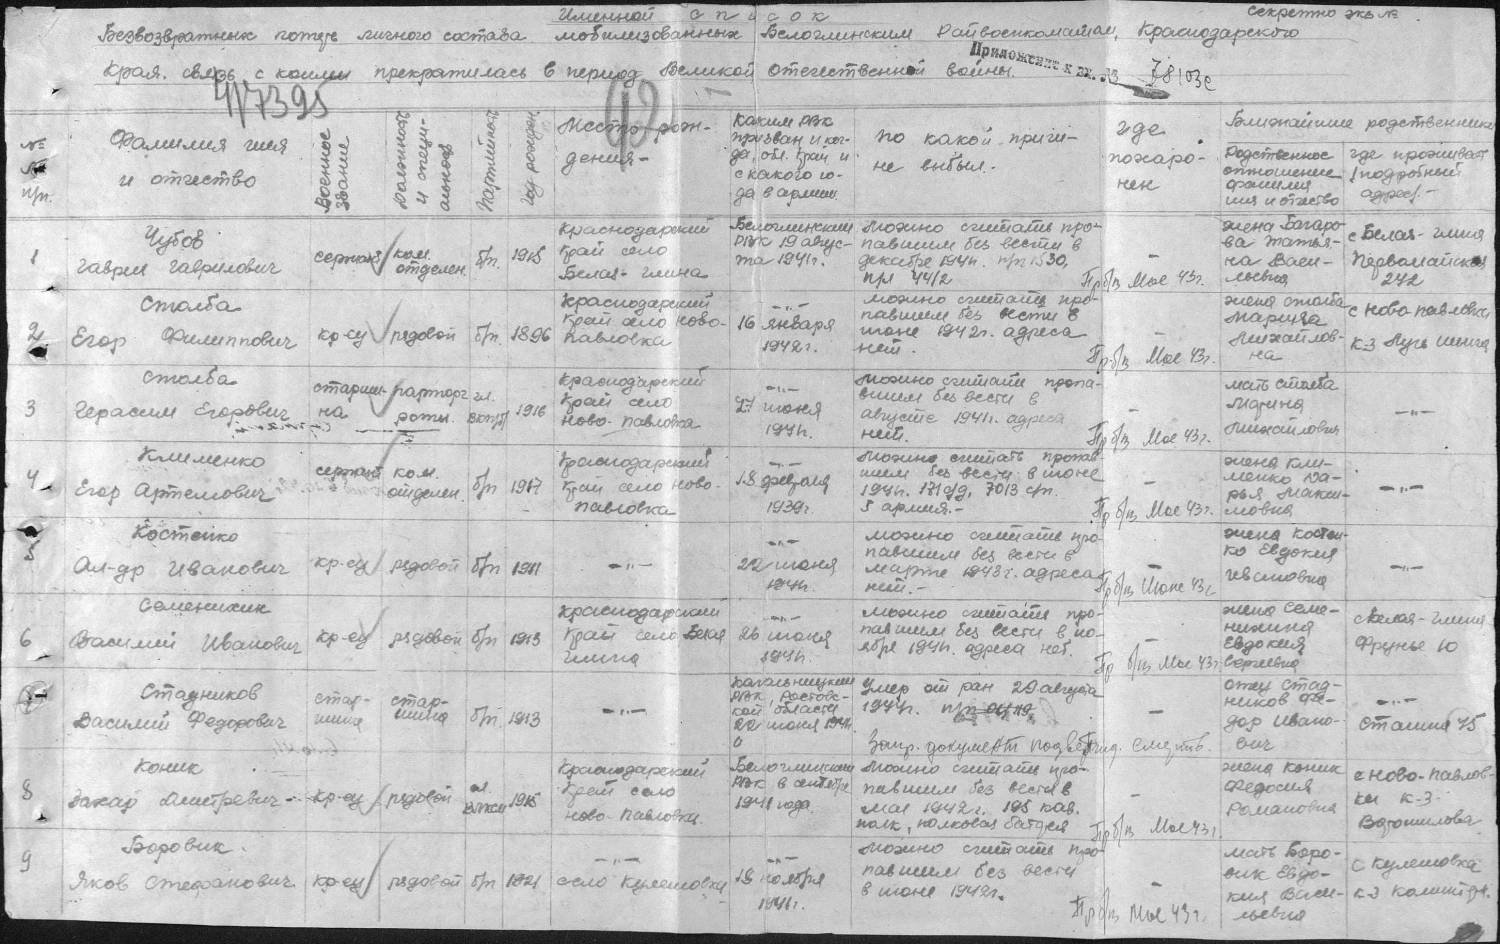 Именной список
секретно экз №
Безвозвратных потерь личного состава мобилизованных Белоглинским Райвоенкоматом, Краснодарского
Края. связь с коими прекратилась в период Великой отечественной войны.
Приложение к вх. №
78103с
417395
№ № п/п.
Фамилия имя и отчество
Военное звание
Должность и специальность
Партийность
Год рождения
Место рождения-
Каким РВК призван и когда, обл. край и с какого года в армии
по какой причине выбыл.
где похоронен
Ближайшие родственники
Родственное отношение фамилия имя и отчество
где проживают /подробный адрес/.-
1
Чубов
гаврил гаврилович
сержант
ком. отделен.
б/п.
1915
Краснодарский
Край село
Белая-глина
Белоглинским
РВК 19 авгус-
та 1941г.
Можно считать про-
павшим без вести в
декабре 1941г. п/п 1530,
п/я 44/2
-
Пр б/вц Мае 43г.
жена Багаро-
ва Татья-
на Васи-
льевна
с Белая-глина
Первомайская
242
2
Столба
Егор Филиппович
кр-ец
рядовой
б/п.
1896
Краснодарский
Край село Ново-
Павловка
-"-
16 января
1942г.
можно считать про-
павшим без вести в
июне 1942г. адреса
нет.
-
Пр б/вц Мае 43г.
жена столба
Марина
Михайлов-
на
с Ново-павловка
к-з Путь Ильича
3
столба
герасим Егорович
старши-
на
парторг
роты.
чл.
ВКП/б/
1916
Краснодарский
Край село
Ново-павловка
-"-
27 июня
1941г.
можно считать пропа-
вшим без вести в
августе 1941г. адреса
нет.
-
Пр б/вц Мае 43г.
мать столба
Марина
Михайловна
-"-
4
Клименко
Егор Артемович
сержант
ком.
отделен.
б/п
1917
Краснодарский
Край село Ново-
Павловка
-"-
18 февраля
1939г.
Можно считать пропав-
шим без вести в июне
1941г. 171 с/д, 7013 с/п.
5 армия.-
-
Пр б/вц Мае 43г.
жена Кли-
менко Да-
рья Макси-
мовна
-"-
5
Костенко
Ал-др Иванович
кр-ец
рядовой
б/п
1911
-"-
-"-
22 июня
1941г.
можно считать про-
павшим без вести в
марте 1943г. адреса
нет.-
-
Пр б/вц Июне 43г.
жена Костен-
ко Евдокия
Ивановна
-"-
6
Семенихин
Василий Иванович
кр-ец
рядовой
б/п
1913
Краснодарский
Край село Белая
глина
-"-
26 июня
1941г.
Можно считать про-
павшим без вести в но-
ябре 1941г. адреса нет.
-
Пр б/вц Мае 43г
жена Семе-
нихина
Евдокия
Сергеевна
с Белая-глина
Фрунзе 10
7
Стадников
Василий Федорович
стар-
шина
стар-
шина
б/п
1913
-"-
Кагальницким
РВК, Ростовс-
кой области
22 июня 1941г.
Умер от ран 29 августа
1941г.
-
Запр. документ подтвержд. смерть.
отец стад-
ников Фе-
дор Ивано-
вич
-"-
Сталина 75
8
Коник
Захар Дмитревич-
кр-ец
рядовой
чл.
ВЛКСМ
1915
Краснодарский
Край село
Ново-павловка.
Белоглинским
РВК в сентябре
1941 года.
Можно считать про-
павшим без вести в
мае 1942г. 195 кав.
полк, полковая батарея
-
Пр б/вц Мае 43г.
жена Коник
Федосия
Романовна
с Ново-павлов-
ки к-з
Ворошилова
9
Боровик.
Яков Стефанович
кр-ец
рядовой
б/п
1921
-"-
село Кулешовка
-"-
18 ноября
1941г.
Можно считать про-
павшим без вести
в июне 1942г.
-
Пр б/вц Мае 43г.
мать Боро-
вик Евдо-
кия Васи-
льевна
с Кулешовка
к-з Коминтерн.